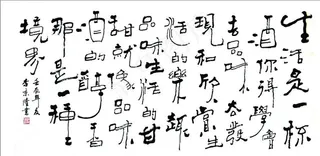 生活是一杯
酒你得學會
去品味去發
現和欣賞生
活的樂趣
品味生活的甘
甜就像品味
酒的香
那是一種
境界
壬辰年夏